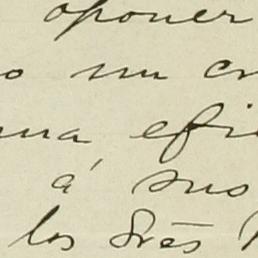 oponer
o un cr
una efi
á sus
los Srēs